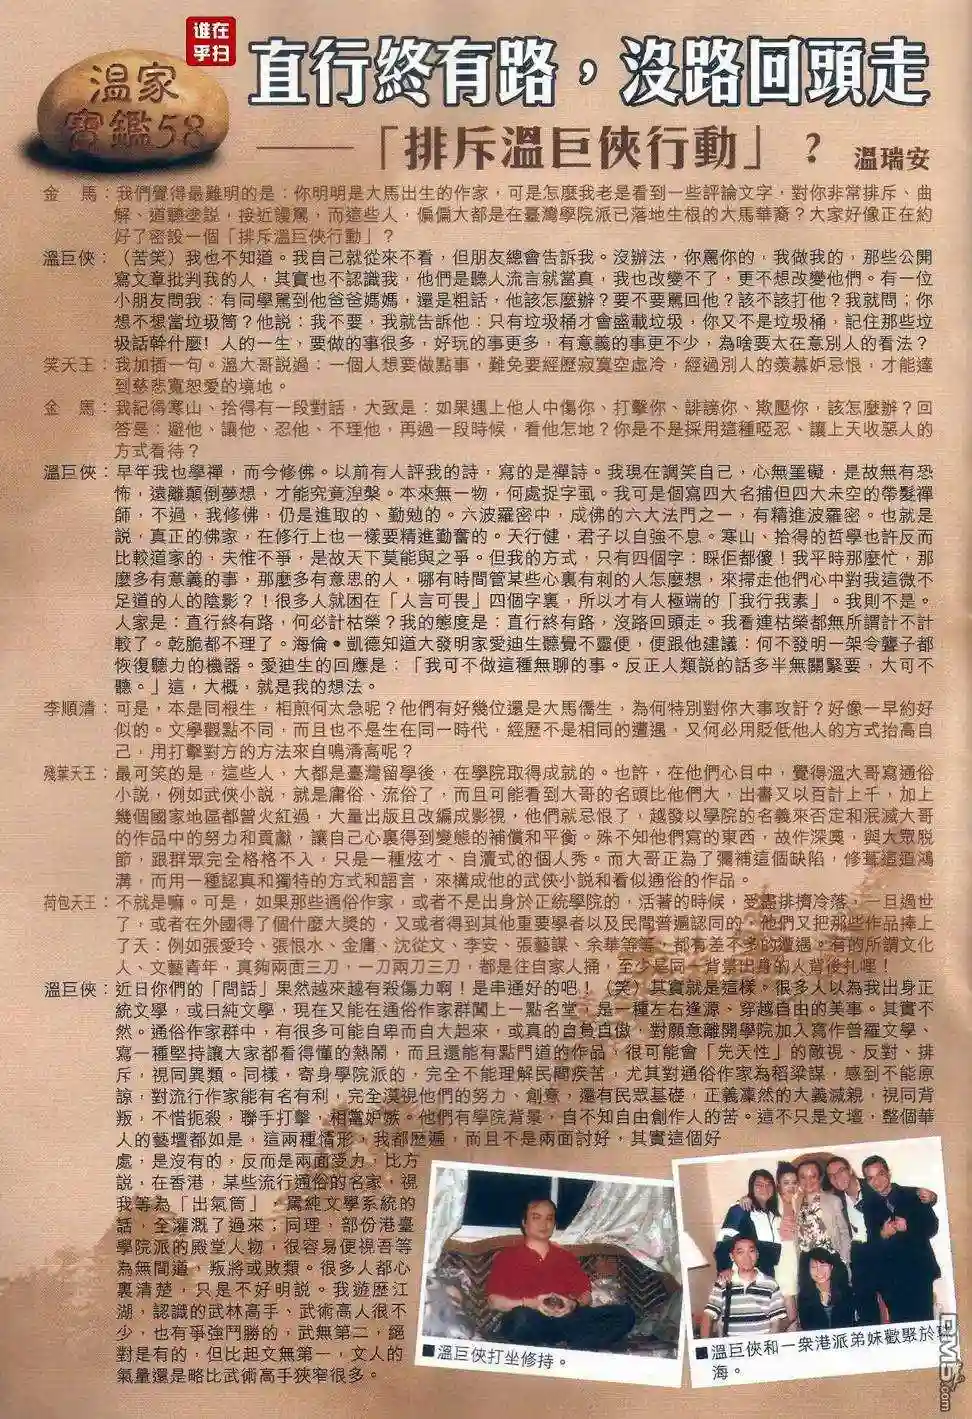 谁在
乎扫
温家
寶鑑58
直行終有路，沒路回頭走
——「排斥溫巨俠行動」？ 溫瑞安
金　馬：我們覺得最難明的是：你明明是大馬出生的作家，可是怎麼我老是看到一些評論文字，對你非常排斥、曲
解、道聽塗説，接近謾罵，而這些人，偏偏大都是在臺灣學院派已落地生根的大馬華裔？大家好像正在約
好了密設一個「排斥溫巨俠行動」？
溫巨俠：（苦笑）我也不知道。我自己就從來不看，但朋友總會告訴我。沒辦法，你罵你的，我做我的，那些公開
寫文章批判我的人，其實也不認識我，他們是聽人流言就當真，我也改變不了，更不想改變他們。有一位
小朋友問我：有同學罵到他爸爸媽媽，還是粗話，他該怎麼辦？要不要罵回他？該不該打他？我就問；你
想不想當垃圾筒？他説：我不要，我就告訴他：只有垃圾桶才會盛載垃圾，你又不是垃圾桶，記住那些垃
圾話幹什麼！人的一生，要做的事很多，好玩的事更多，有意義的事更不少，為啥要太在意別人的看法？
笑天王：我加插一句。溫大哥説過：一個人想要做點事，難免要經歷寂寞空虛冷，經過別人的羨慕妒忌恨，才能達
到慈悲寬恕愛的境地。
金　馬：我記得寒山、拾得有一段對話，大致是：如果遇上他人中傷你、打擊你、誹謗你、欺壓你，該怎麼辦？回
答是：避他、讓他、忍他、不理他，再過一段時候，看他怎地？你是不是採用這種啞忍、讓上天收惡人的
方式看待？
溫巨俠：早年我也學禪，而今修佛。以前有人評我的詩，寫的是禪詩。我現在調笑自己，心無罣礙，是故無有恐
怖，遠離顛倒夢想，才能究竟涅槃。本來無一物，何處捉字虱。我可是個寫四大名捕但四大未空的帶髮禪
師，不過，我修佛，仍是進取的、勤勉的。六波羅密中，成佛的六大法門之一，有精進波羅密。也就是
説，真正的佛家，在修行上也一樣要精進勤奮的。天行健，君子以自強不息。寒山、拾得的哲學也許反而
比較道家的，夫惟不爭，是故天下莫能與之爭。但我的方式，只有四個字：睬佢都傻！我平時那麼忙，那
麼多有意義的事，那麼多有意思的人，哪有時間管某些心裏有刺的人怎麼想，來掃走他們心中對我這微不
足道的人的陰影？！很多人就困在「人言可畏」四個字裏，所以才有人極端的「我行我素」。我則不是。
人家是：直行終有路，何必計枯榮？我的態度是：直行終有路，沒路回頭走。我看連枯榮都無所謂計不計
較了。乾脆都不理了。海倫•凱德知道大發明家愛迪生聽覺不靈便，便跟他建議：何不發明一架令聾子都
恢復聽力的機器。愛迪生的回應是：「我可不做這種無聊的事。反正人類説的話多半無關緊要，大可不
聽。」這，大概，就是我的想法。
李順清：可是，本是同根生，相煎何太急呢？他們有好幾位還是大馬僑生，為何特別對你大事攻訐？好像一早約好
似的。文學觀點不同，而且也不是生在同一時代，經歷不是相同的遭遇，又何必用貶低他人的方式抬高自
己，用打擊對方的方法來自鳴清高呢？
殘葉天王：最可笑的是，這些人，大都是臺灣留學後，在學院取得成就的。也許，在他們心目中，覺得溫大哥寫通俗
小説，例如武俠小説，就是庸俗、流俗了，而且可能看到大哥的名頭比他們大，出書又以百計上千，加上
幾個國家地區都曾火紅過，大量出版且改編成影視，他們就忌恨了，越發以學院的名義來否定和泯滅大哥
的作品中的努力和貢獻，讓自己心裏得到變態的補償和平衡。殊不知他們寫的東西，故作深奧，與大眾脱
節，跟群眾完全格格不入，只是一種炫才、自瀆式的個人秀。而大哥正為了彌補這個缺陷，修葺這道鴻
溝，而用一種認真和獨特的方式和語言，來構成他的武俠小説和看似通俗的作品。
荷包天王：不就是嘛。可是，如果那些通俗作家，或者不是出身於正統學院的，活著的時候，受盡排擠冷落，一旦過世
了，或者在外國得了個什麼大獎的，又或者得到其他重要學者以及民間普遍認同的，他們又把那些作品捧上
了天：例如張愛玲、張恨水、金庸、沈從文、李安、張藝謀、余華等等，都有差不多的遭遇。有的所謂文化
人、文藝青年，真夠兩面三刀，一刀兩刀三刀，都是往自家人捅，至少是同一背景出身的人背後扎哩！
溫巨俠：近日你們的「問話」果然越來越有殺傷力啊！是串通好的吧！（笑）其實就是這樣。很多人以為我出身正
統文學，或曰純文學，現在又能在通俗作家群闖上一點名堂，是一種左右逢源、穿越自由的美事。其實不
然。通俗作家群中，有很多可能自卑而自大起來，或真的自負自傲，對願意離開學院加入寫作普羅文學、
寫一種堅持讓大家都看得懂的熱鬧，而且還能有點門道的作品，很可能會「先天性」的敵視、反對、排
斥，視同異類。同樣，寄身學院派的，完全不能理解民間疾苦，尤其對通俗作家為稻粱謀，感到不能原
諒，對流行作家能有名有利，完全漠視他們的努力、創意，還有民眾基礎，正義凜然的大義滅親，視同背
叛，不惜扼殺，聯手打擊，相當妒嫉。他們有學院背景，自不知自由創作人的苦。這不只是文壇，整個華
人的藝壇都如是，這兩種情形，我都歷遍，而且不是兩面討好，其實這個好
處，是沒有的，反而是兩面受力，比方
説，在香港，某些流行通俗的名家，視
我等為「出氣筒」，罵純文學系統的
話，全灌溉了過來；同理，部份港臺
學院派的殿堂人物，很容易便視吾等
為無間道，叛將或敗類。很多人都心
裏清楚，只是不好明説。我遊歷江
湖，認識的武林高手、武術高人很不
少，也有爭強鬥勝的，武無第二，絕
對是有的，但比起文無第一，文人的
氣量還是略比武術高手狹窄很多。
■溫巨俠打坐修持。
■溫巨俠和一衆港派弟妹歡聚於
海。
DM5.com